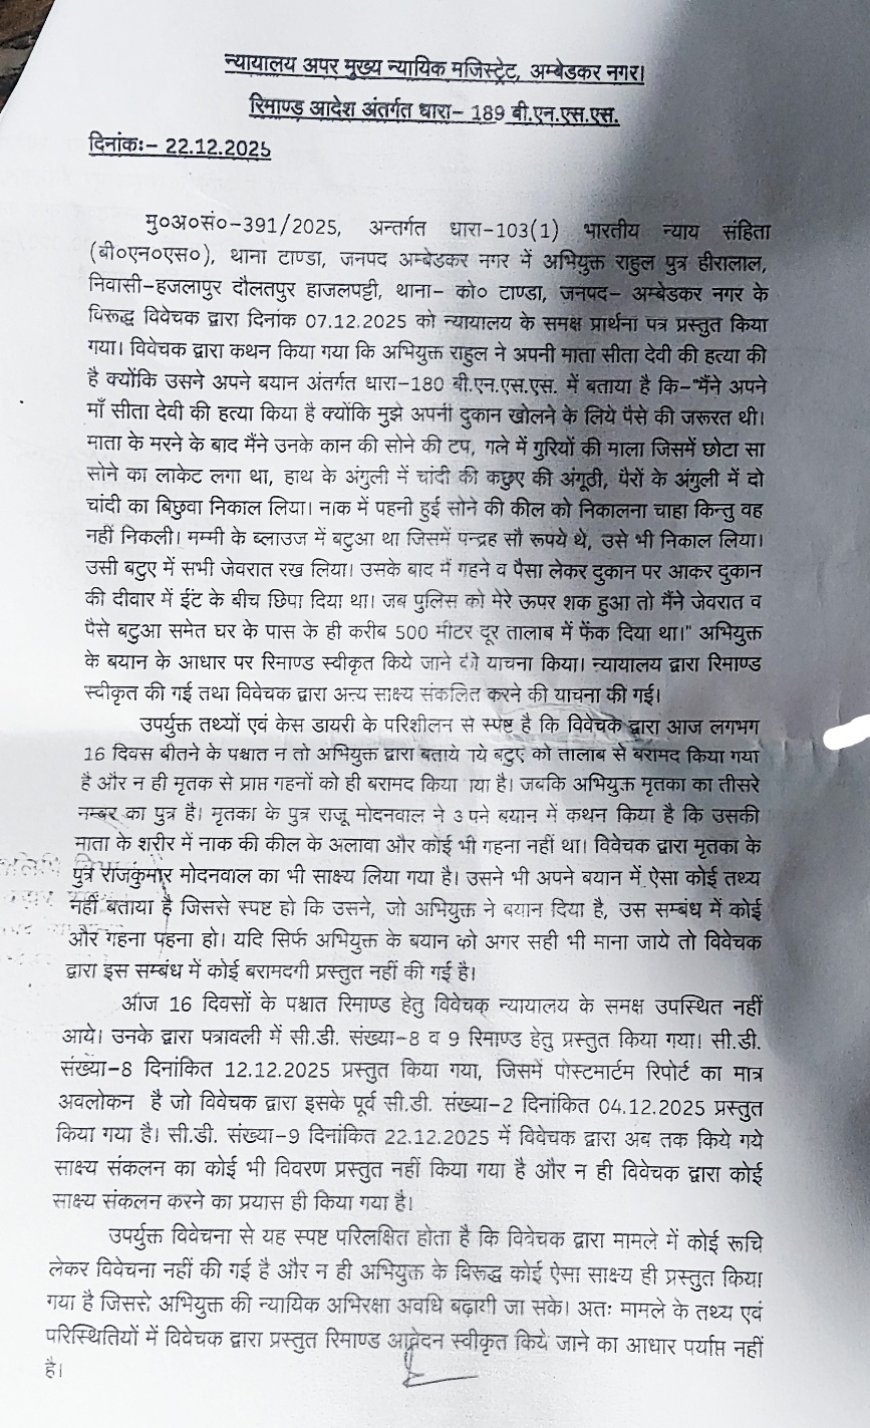 न्यायालय अपर मुख्य न्यायिक मजिस्ट्रेट, अम्बेडकर नगर।
रिमाण्ड आदेश अंतर्गत धारा– 189 बी.एन.एस.एस.
दिनांकः– 22.12.2025
मु०अ०सं०–391/2025, अन्तर्गत धारा–103(1) भारतीय न्याय संहिता
(बी०एन०एस०), थाना टाण्डा, जनपद अम्बेडकर नगर में अभियुक्त राहुल पुत्र हीरालाल,
निवासी–हजलापुर दौलतपुर हाजलपट्टी, थाना– को० टाण्डा, जनपद– अम्बेडकर नगर के
विरूद्ध विवेचक द्वारा दिनांक 07.12.2025 को न्यायालय के समक्ष प्रार्थना पत्र प्रस्तुत किया
गया। विवेचक द्वारा कथन किया गया कि अभियुक्त राहुल ने अपनी माता सीता देवी की हत्या की
है क्योंकि उसने अपने बयान अंतर्गत धारा–180 बी.एन.एस.एस. में बताया है कि–"मैंने अपने
माँ सीता देवी की हत्या किया है क्योंकि मुझे अपनी दुकान खोलने के लिये पैसे की जरूरत थी।
माता के मरने के बाद मैंने उनके कान की सोने की टप, गले में गुरियों की माला जिसमें छोटा सा
सोने का लाकेट लगा था, हाथ के अंगुली में चांदी की कछुए की अंगूठी, पैरों के अंगुली में दो
चांदी का बिछुवा निकाल लिया। नाक में पहनी हुई सोने की कील को निकालना चाहा किन्तु वह
नहीं निकली। मम्मी के ब्लाउज में बटुआ था जिसमें पन्द्रह सौ रूपये थे, उसे भी निकाल लिया।
उसी बटुए में सभी जेवरात रख लिया। उसके बाद मैं गहने व पैसा लेकर दुकान पर आकर दुकान
की दीवार में ईंट के बीच छिपा दिया था। जब पुलिस को मेरे ऊपर शक हुआ तो मैंने जेवरात व
पैसे बटुआ समेत घर के पास के ही करीब 500 मीटर दूर तालाब में फेंक दिया था।" अभियुक्त
के बयान के आधार पर रिमाण्ड स्वीकृत किये जाने की याचना किया। न्यायालय द्वारा रिमाण्ड
स्वीकृत की गई तथा विवेचक द्वारा अन्य साक्ष्य संकलित करने की याचना की गई।
उपर्युक्त तथ्यों एवं केस डायरी के परिशीलन से स्पष्ट है कि विवेचक द्वारा आज लगभग
16 दिवस बीतने के पश्चात न तो अभियुक्त द्वारा बताये गये बटुए को तालाब से बरामद किया गया
है और न ही मृतक से प्राप्त गहनों को ही बरामद किया गया है। जबकि अभियुक्त मृतका का तीसरे
नम्बर का पुत्र है। मृतका के पुत्र राजू मोदनवाल ने अपने बयान में कथन किया है कि उसकी
माता के शरीर में नाक की कील के अलावा और कोई भी गहना नहीं था। विवेचक द्वारा मृतका के
पुत्र राजकुमार मोदनवाल का भी साक्ष्य लिया गया है। उसने भी अपने बयान में ऐसा कोई तथ्य
नहीं बताया है जिससे स्पष्ट हो कि उसने, जो अभियुक्त ने बयान दिया है, उस सम्बंध में कोई
और गहना पहना हो। यदि सिर्फ अभियुक्त के बयान को अगर सही भी माना जाये तो विवेचक
द्वारा इस सम्बंध में कोई बरामदगी प्रस्तुत नहीं की गई है।
आज 16 दिवसों के पश्चात रिमाण्ड हेतु विवेचक न्यायालय के समक्ष उपस्थित नहीं
आये। उनके द्वारा पत्रावली में सी.डी. संख्या–8 व 9 रिमाण्ड हेतु प्रस्तुत किया गया। सी.डी.
संख्या–8 दिनांकित 12.12.2025 प्रस्तुत किया गया, जिसमें पोस्टमार्टम रिपोर्ट का मात्र
अवलोकन है जो विवेचक द्वारा इसके पूर्व सी.डी. संख्या–2 दिनांकित 04.12.2025 प्रस्तुत
किया गया है। सी.डी. संख्या–9 दिनांकित 22.12.2025 में विवेचक द्वारा अब तक किये गये
साक्ष्य संकलन का कोई भी विवरण प्रस्तुत नहीं किया गया है और न ही विवेचक द्वारा कोई
साक्ष्य संकलन करने का प्रयास ही किया गया है।
उपर्युक्त विवेचना से यह स्पष्ट परिलक्षित होता है कि विवेचक द्वारा मामले में कोई रूचि
लेकर विवेचना नहीं की गई है और न ही अभियुक्त के विरूद्ध कोई ऐसा साक्ष्य ही प्रस्तुत किया
गया है जिससे अभियुक्त की न्यायिक अभिरक्षा अवधि बढ़ायी जा सके। अतः मामले के तथ्य एवं
परिस्थितियों में विवेचक द्वारा प्रस्तुत रिमाण्ड आवेदन स्वीकृत किये जाने का आधार पर्याप्त नहीं
है।